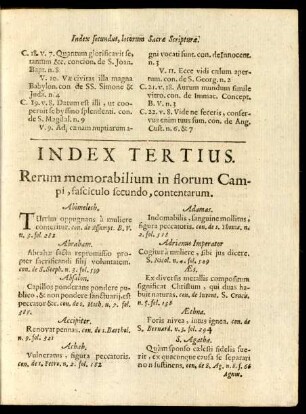 Index secundus, locorum Sacræ Scripturæ.
C. 18. v. 7. Quantum glorificavit se,
tantum &c. concion. de S. Joan.
Bapt. n. 8
V. 10. Væ civitas illa magna
Babylon. con de SS. Simone &
Judâ. n. 4
C. 19. v. 8. Datum est illi, ut coo-
periat se byssino splendenti. con.
de S. Magdal. n. 9
V. 9. Ad, cænam nuptiarum a-
gni vocati sunt. con. de Innocent.
n. 3
V. 11. Ecce vidi cælum aper-
tum. con. de S. Georg. n. 2
C. 21. v. 18. Aurum mundum simile
vitro. con. de Immac. Concept.
B. V. n. 3
C. 22. v. 8. Vide ne feceris, conser-
vus enim tuus sum. con. de Ang.
Cust. n. 6. & 7
INDEX TERTIUS.
Rerum memorabilium in florum Cam-
pi, fasciculo secundo, contentarum.
Abimelech.
TUrrim oppugnans à muliere
conteritur. con. de Assumpt. B. V.
n. 3. fol. 288
Abraham.
Abrahæ facta repromissio pro-
pter sacrificandi filij voluntatem.
con. de S. Steph. n. 5. fol. 159
Absalon.
Capillos ponderans pondere pu-
blico, & non pondere sanctuarij. est
peccator &c. con. de S. Jac. n. 7. fol.
Accipiter.
Renovat pennas. con. de S. Barthol.
n. 9. fol. 321
Achab.
Vulneratus, figura peccatoris.
con. de S. Petro. n. 2. fol. 182
Adamas.
Indomabilis, sanguine mollitus,
figura peccatoris. con. de 1. Thoma. n.
2. fol. 518
Adrianus Imperator
Cogitur à muliere, sibi jus dicere.
con. S. Nicol. n. 4. fol. 529
Æs.
Ex diversis metallis compositum
significat Christum, qui duas ha-
buit naturas. con. de Invent. S. Crucis.
n. 5. fol. 198
Æthna.
Foris nivea, intus ignea. con. de
S. Bernard. n. 3. fol. 294
S. Agatha.
Quàm sponso cælesti fidelis fue-
rit, ex quacunque causa se separari
non sustinens. con. de S. Ag. n. 8. f. 68
Agnus.